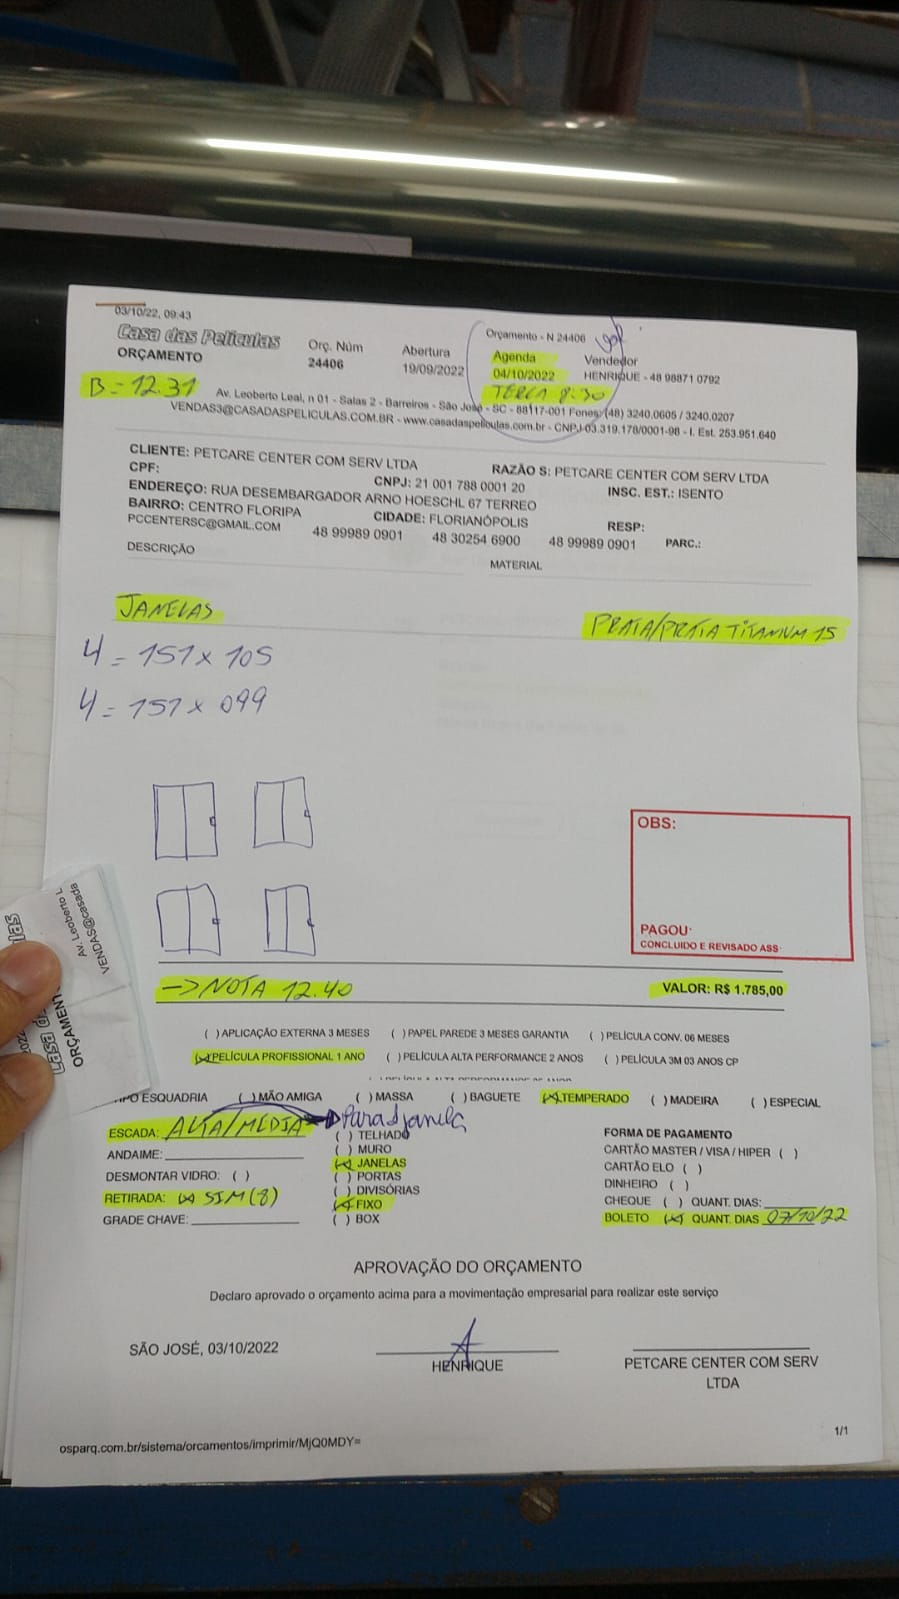 03/10/22, 09:43
Orçamento - N 24406
Casa das Películas
ORÇAMENTO
Orç. Núm
24406
Abertura
19/09/2022
Agenda
04/10/2022
TERCA 8:30
Vendedor
HENRIQUE - 48 98871 0792
B = 12.31
Av. Leoberto Leal, n 01 - Salas 2 - Barreiros - São José - SC - 88117-001 Fones: (48) 3240.0605 / 3240.0207
VENDAS3@CASADASPELICULAS.COM.BR - www.casadaspeliculas.com.br - CNPJ 03.319.178/0001-98 - I. Est. 253.951.640
CLIENTE: PETCARE CENTER COM SERV LTDA RAZÃO S: PETCARE CENTER COM SERV LTDA
CPF: CNPJ: 21 001 788 0001 20 INSC. EST.: ISENTO
ENDEREÇO: RUA DESEMBARGADOR ARNO HOESCHL 67 TERREO
BAIRRO: CENTRO FLORIPA CIDADE: FLORIANÓPOLIS RESP:
PCCENTERSC@GMAIL.COM 48 99989 0901 48 30254 6900 48 99989 0901 PARC.:
DESCRIÇÃO MATERIAL
JANELAS PRATA/PRATA TITANIUM 15
4 = 151 x 105
4 = 151 x 099
OBS:
PAGOU
CONCLUIDO E REVISADO ASS
-> NOTA 12.40 VALOR: R$ 1.785,00
( ) APLICAÇÃO EXTERNA 3 MESES ( ) PAPEL PAREDE 3 MESES GARANTIA ( ) PELÍCULA CONV. 06 MESES
(x) PELÍCULA PROFISSIONAL 1 ANO ( ) PELÍCULA ALTA PERFORMANCE 2 ANOS ( ) PELÍCULA 3M 03 ANOS CP
ESQUADRIA ( ) MÃO AMIGA ( ) MASSA ( ) BAGUETE (x) TEMPERADO ( ) MADEIRA ( ) ESPECIAL
ESCADA: ALTA/MEDIA Para janela
( ) TELHADO
( ) MURO
(x) JANELAS
( ) PORTAS
( ) DIVISÓRIAS
(x) FIXO
( ) BOX
ANDAIME:
DESMONTAR VIDRO: ( )
RETIRADA: (x) SIM (8)
GRADE CHAVE:
FORMA DE PAGAMENTO
CARTÃO MASTER / VISA / HIPER ( )
CARTÃO ELO ( )
DINHEIRO ( )
CHEQUE ( ) QUANT. DIAS:
BOLETO (x) QUANT. DIAS 07/10/22
APROVAÇÃO DO ORÇAMENTO
Declaro aprovado o orçamento acima para a movimentação empresarial para realizar este serviço
SÃO JOSÉ, 03/10/2022
HENRIQUE
PETCARE CENTER COM SERV
LTDA
1/1
osparq.com.br/sistema/orcamentos/imprimir/MjQ0MDY=
Av. Leoberto L
VENDAS@casada
ORÇAMENT